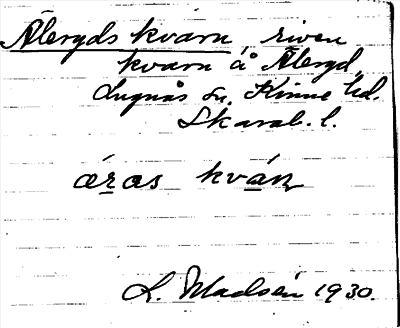 Äleryds kvarn riven
kvarn å Äleryd,
Lugnås sn. Kinne hd.
Skarab. l.
äras kván
L. Madsén 1930.